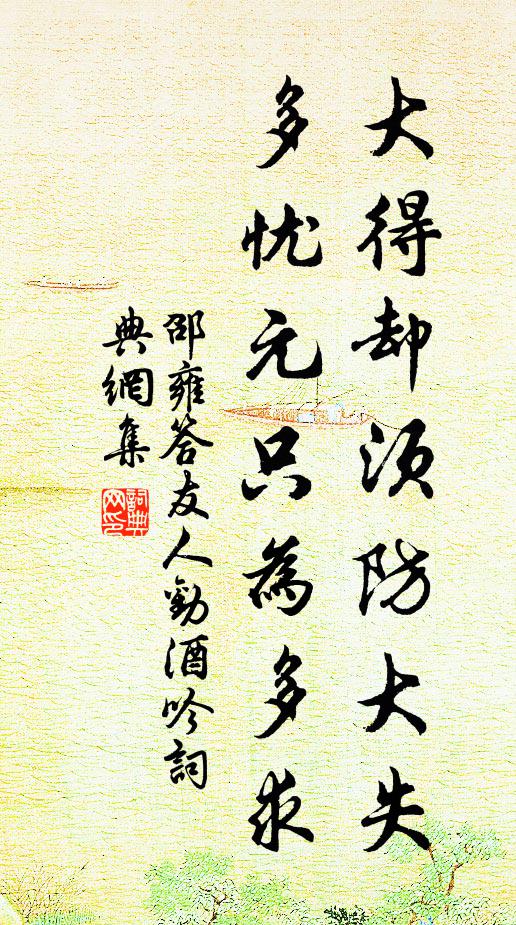 大得却須防大失
多忧元只為多求
邵雍答友人勸酒吟詞
典網集
詞典
网印